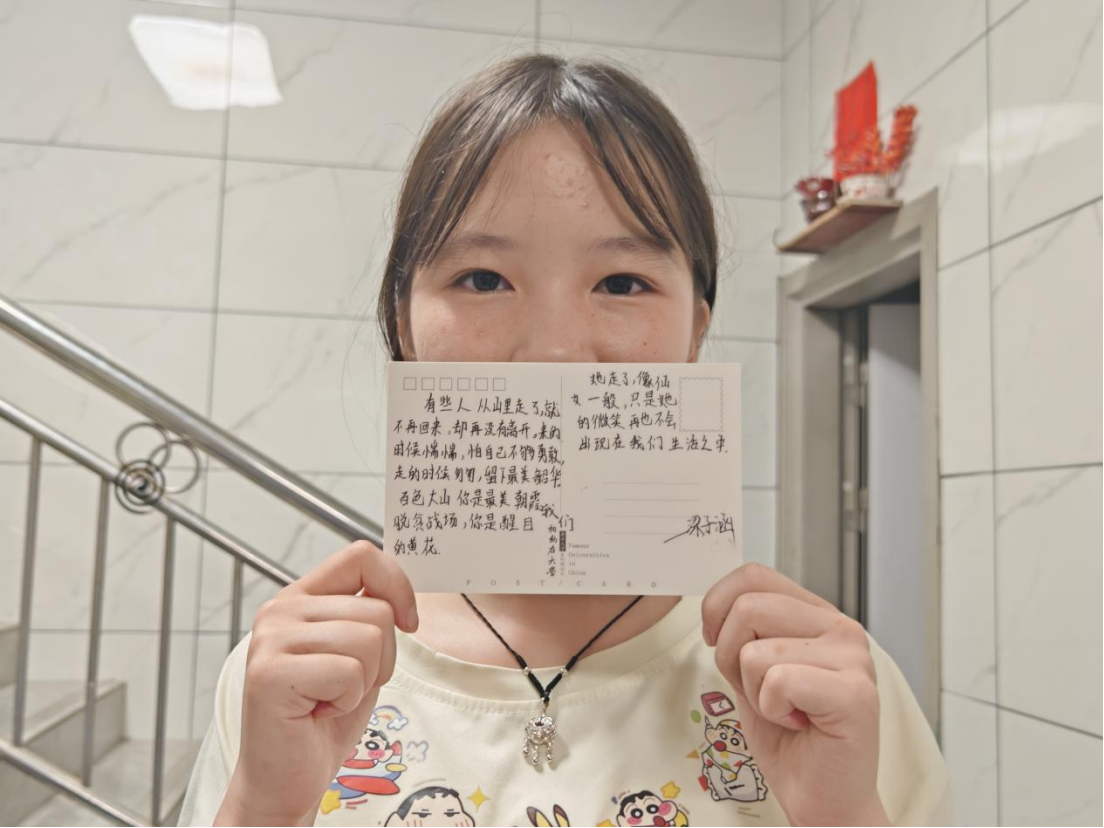 有些人从山里走了,就
不再回来,却再没有离开。来的
时候惴惴,怕自己不够勇敢,
走的时候匆匆,留下最美韶华
百色大山你是最美朝霞
脱贫战场,你是醒目
的黄花.
她走了,像仙
女一般,只是她
的微笑再也不会
出现在我们生活之中.
梁子涵
我们
相约在大学
Famous
Universities
in
China
POST/CARD